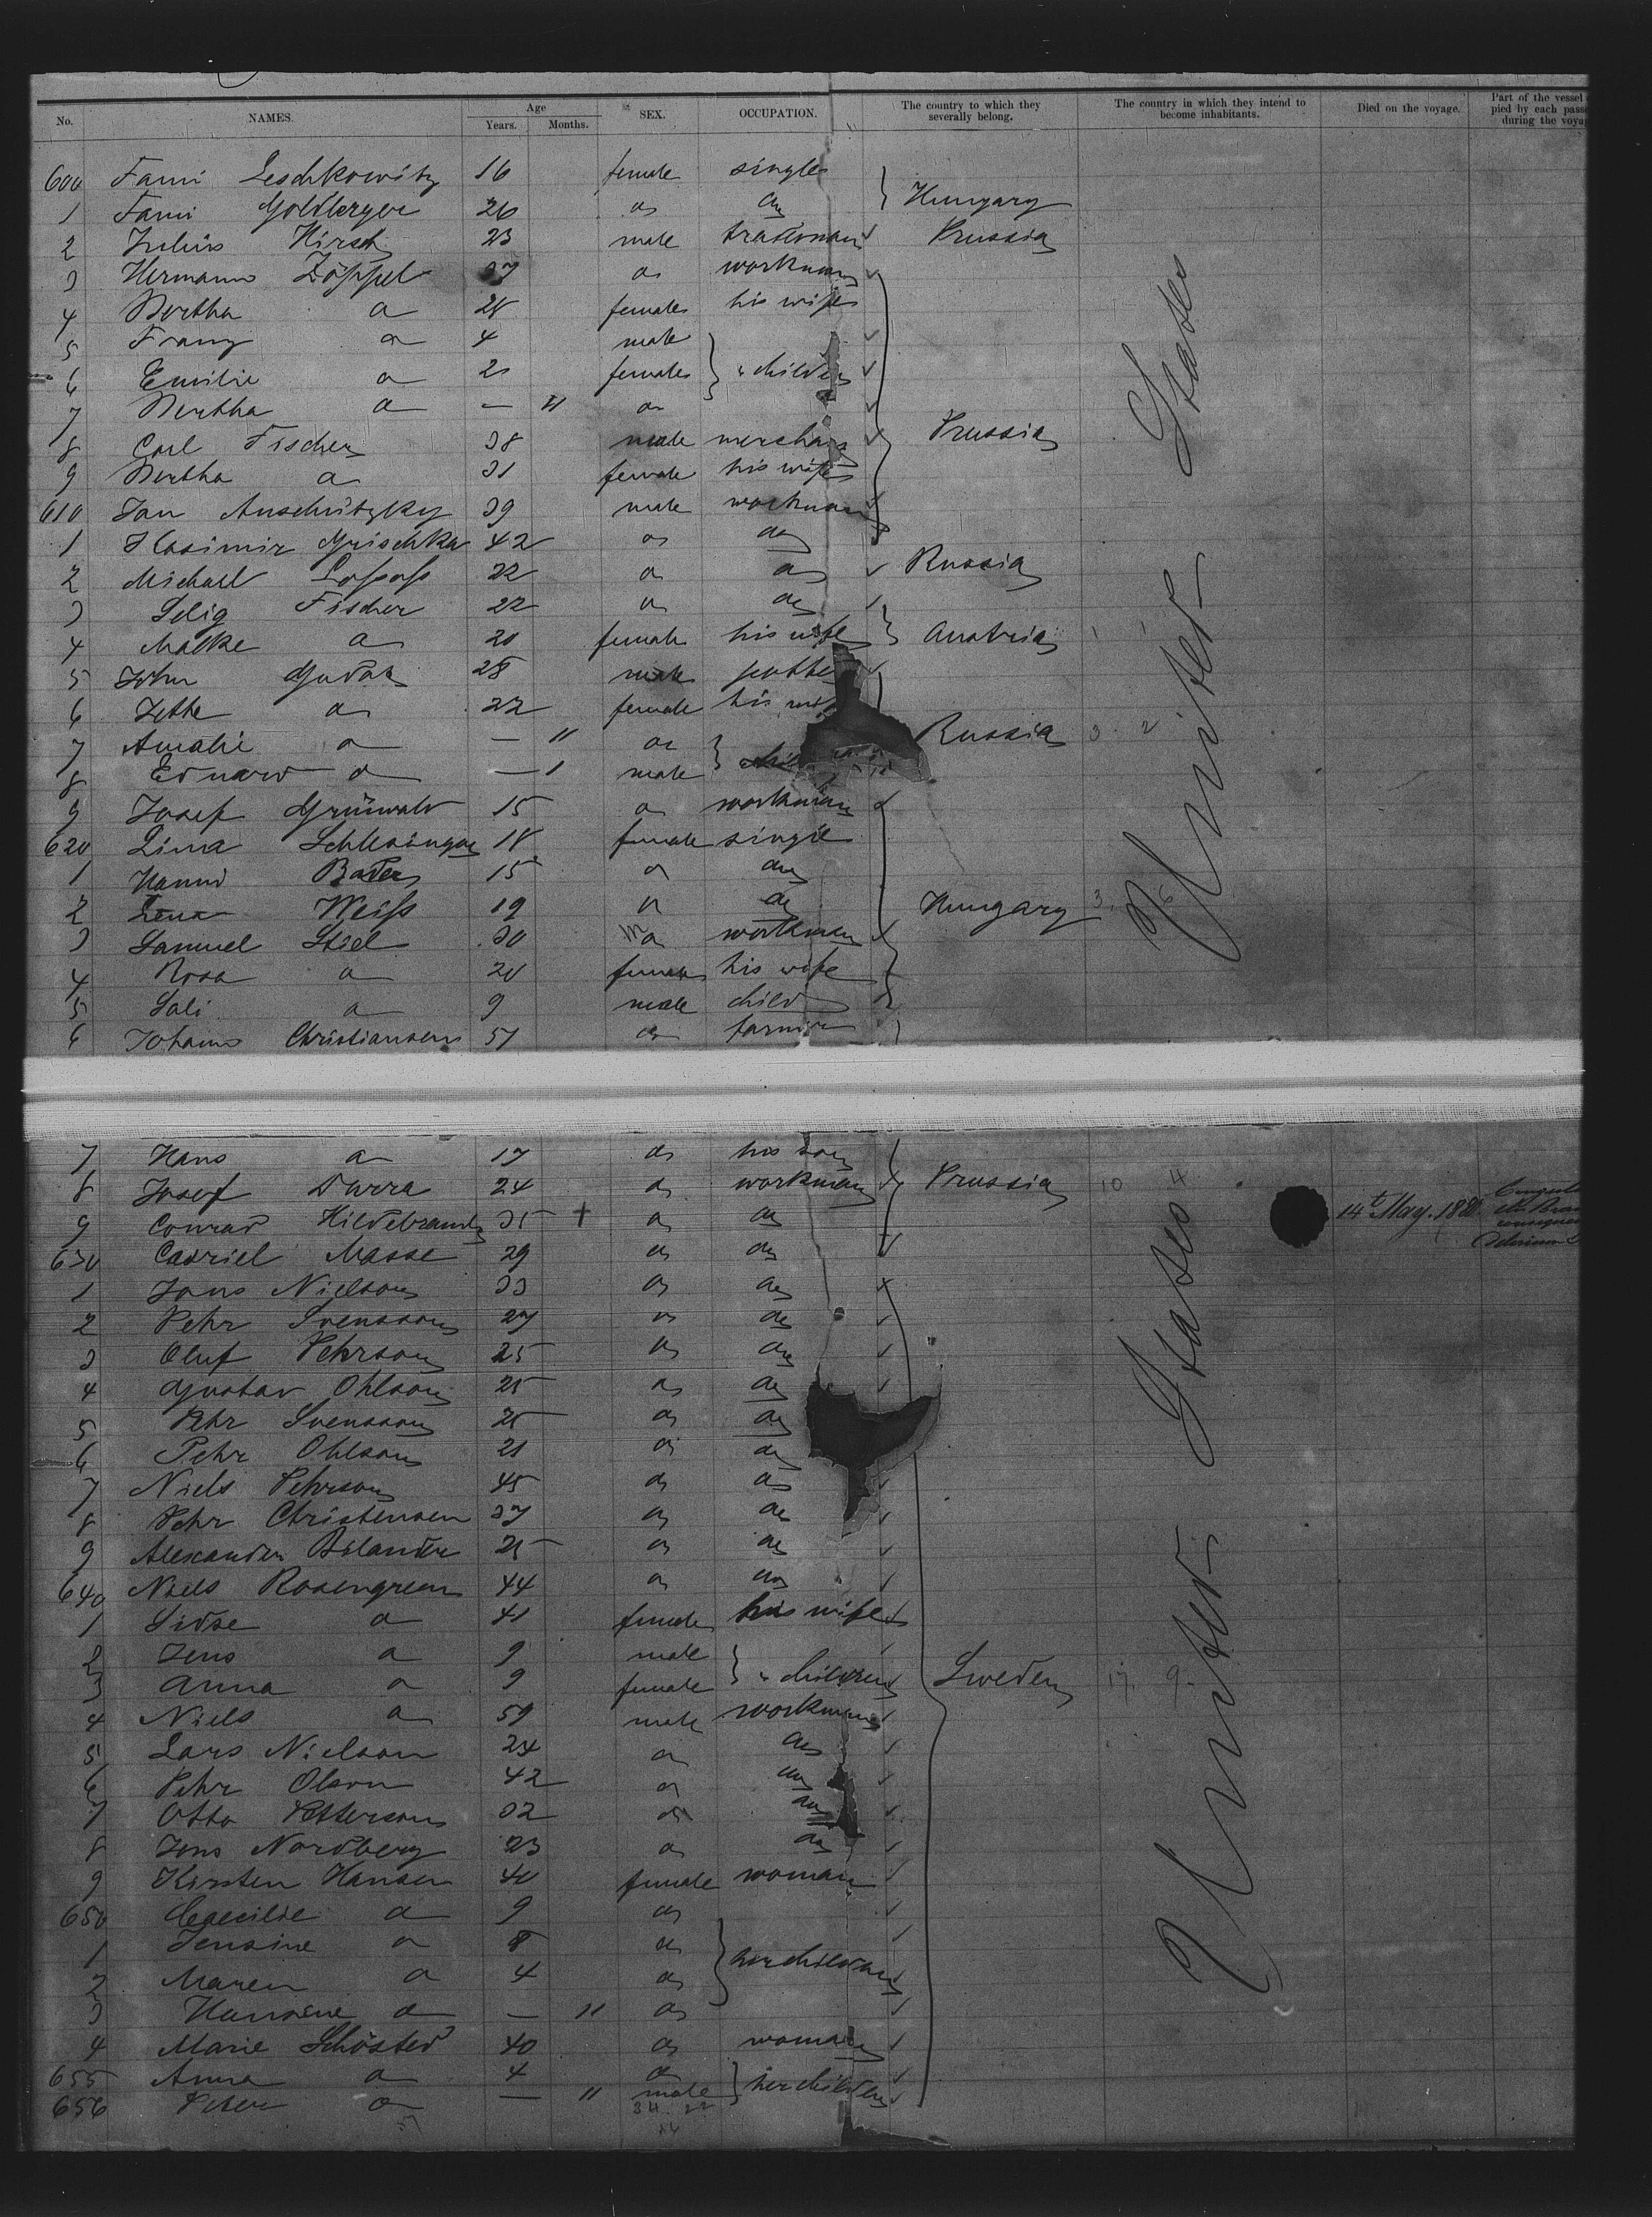 No. NAMES. Age Years. Months. SEX. OCCUPATION. The country to which they severally belong. The country in which they intend to become inhabitants. Died on the voyage. Part of the vessel pied by each pass during the voya
600 Fanni Leschkowitz 16 female single
1 Fanni Goldberger 26 do do Hungary
2 Julius Hirsch 23 male tradesman Prussia
3 Hermann Zöppel 37 do workman
4 Bertha do 28 female his wife
5 Franz do 4 male
6 Emilie do 2 female " children
7 Bertha do — 11 do
8 Carl Fischer 38 male merchant Prussia
9 Bertha do 31 female his wife
610 Jan Anschützky 39 male workman
1 Kasimir Grischka 42 do do
2 Michael 22 do do Russia
3 Selig Fischer 22 do do
4 Malke do 20 female his wife Austria
5 John 28 male
6 Jette do 22 female his wife
7 Amalie do — 11 do Russia 3 2
8 Eduard do — 1 male
9 Josef Grünwald 15 do workman
620 Lina Schlesinger 18 female single
1 Hanni Bader 15 do do
2 Lena Weiss 19 do do Hungary 3. 6
3 Samuel Stiel 30 do workman
4 Rosa do 20 female his wife
5 Sali do 9 male child
6 Johann Christiansen 51 do farmer
United States
7 Hans do 17 do his son
8 Josef Durra 24 do workman Prussia 10 4
9 Conrad Hildebrandt 35 + do do 14th May. 188
630 Masse 29 do do
1 Jons Nielson 33 do do
2 Pehr Svensson 27 do do
3 Oluf Pehrson 25 do do
4 Gustav Ohlson 25 do do
5 Pehr Svensson 25 do do
6 Pehr Ohlson 21 do do
7 Niels Pehrson 45 do do
8 Pehr Christensen 37 do do
9 Alexander 25 do do
640 Niels Rosengreen 44 do do
1 Sidse do 41 female his wife
2 Jens do 9 male
3 Anna do 9 female " children Sweden 17. 9.
4 Niels do 59 male workman
5 Lars Nielson 24 do do
6 Pehr Olson 42 do do
7 Otto Petterson 32 do do
8 Jens Nordberg 23 do do
9 Kirsten Hansen 40 female woman
650 Caecilie do 9 do
1 Jensine do 8 do her children
2 Maren do 4 do
3 Hansine do — 11 do
4 Marie Schösted 40 do woman
655 Anna do 4 do her children
656 Peter do — 11 male
51 34. 22
United States